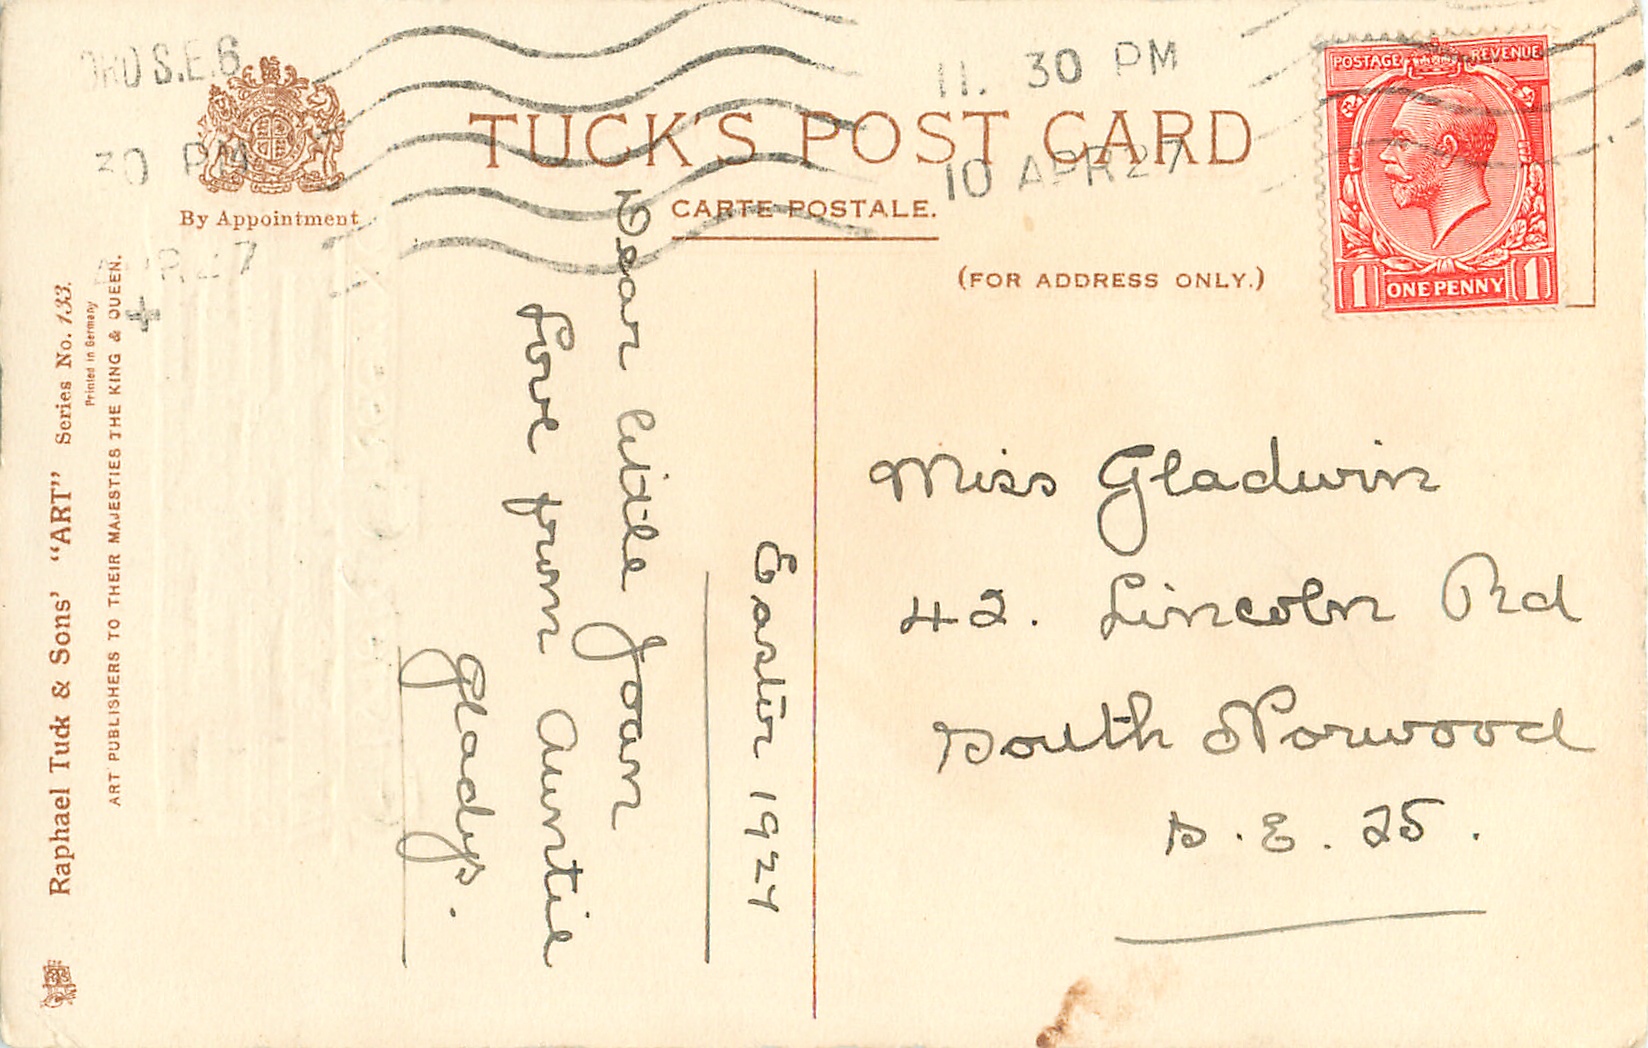 TUCK'S POST CARD
CARTE POSTALE.
(FOR ADDRESS ONLY.)
By Appointment
S.E.6
30 PM
11. 30 PM
10 APR 27
POSTAGE REVENUE
1 ONE PENNY 1
Raphael Tuck & Sons' "ART" Series No. 133.
Printed in Germany
ART PUBLISHERS TO THEIR MAJESTIES THE KING & QUEEN.
Easter 1927
Dear little Joan
Love from Auntie
Gladys.
Miss Gladwin
42. Lincoln Rd
South Norwood
S. E. 25.